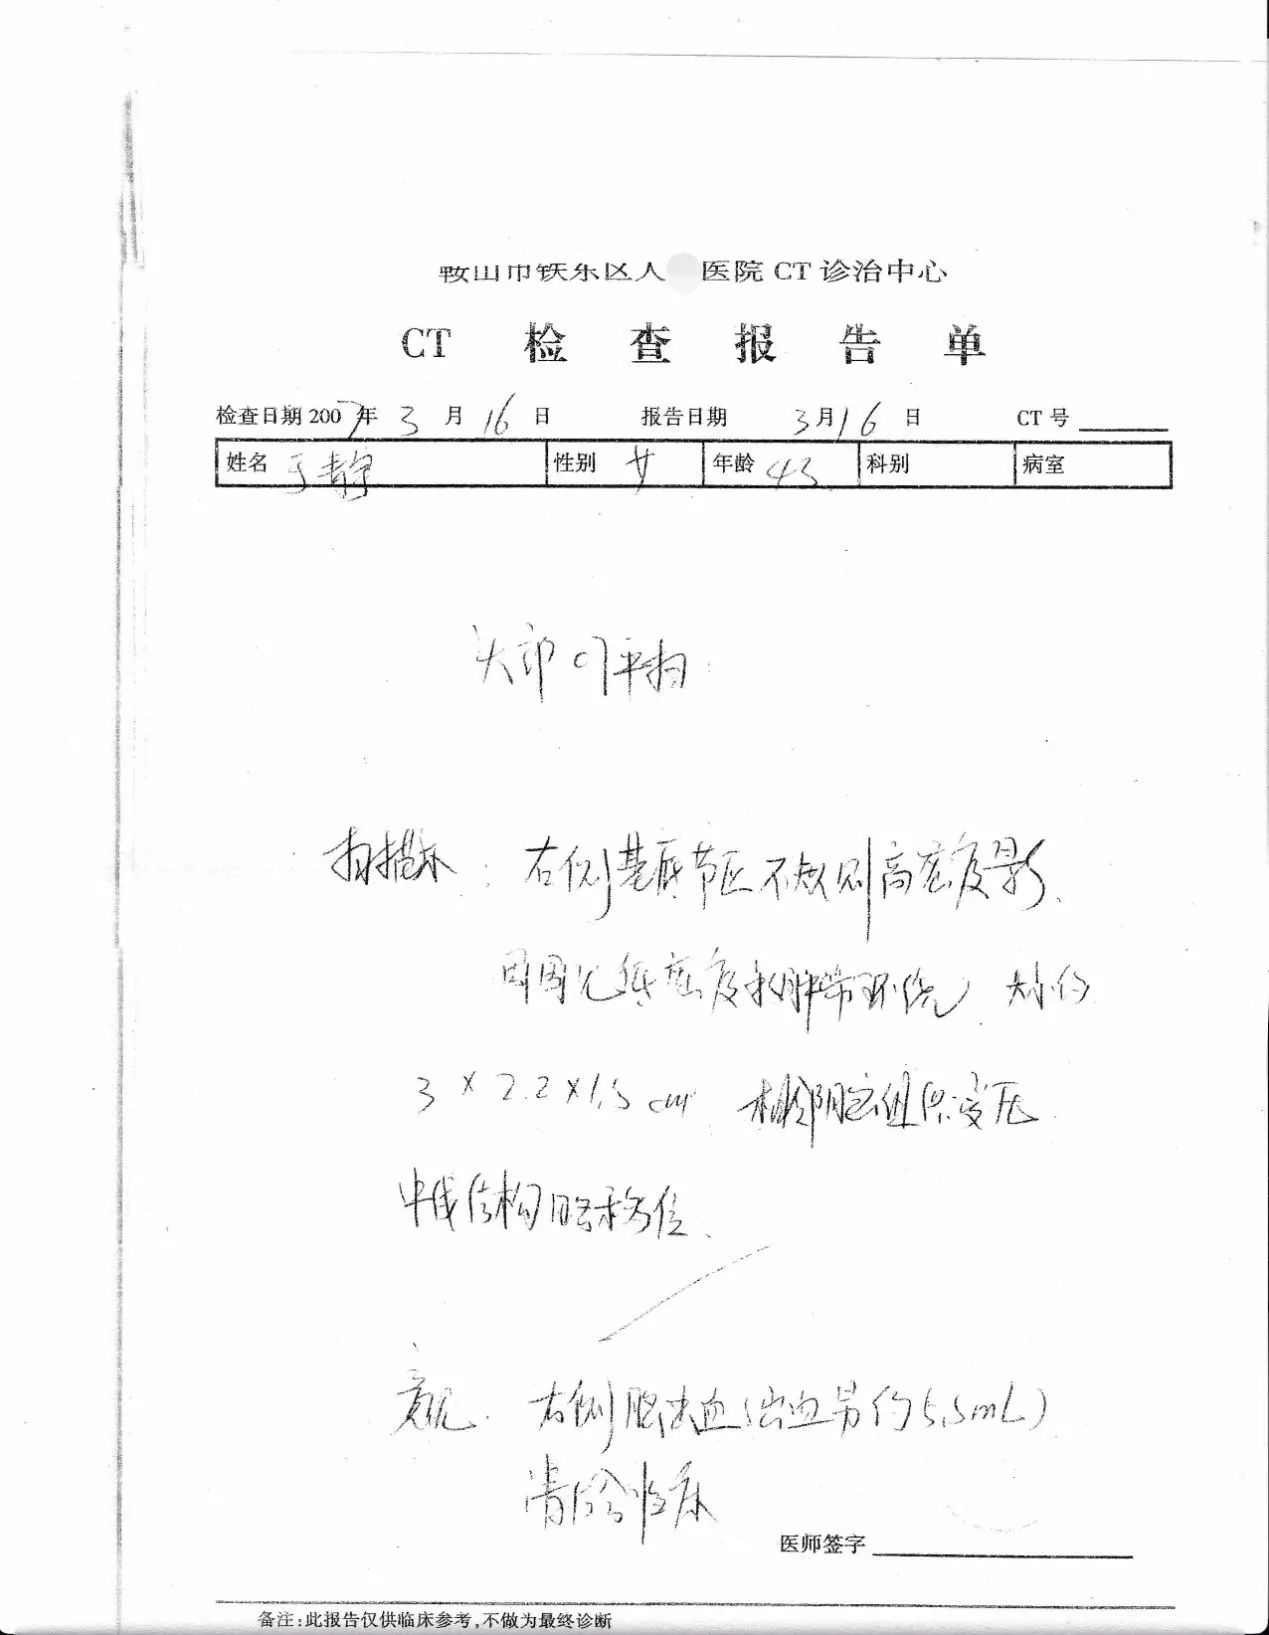 鞍山市铁东区人 医院 CT 诊治中心
CT 检查报告单
检查日期 2007年 3 月 16 日 报告日期 3月16日 CT 号
姓名 于静 性别 女 年龄 43 科别 病室
头部CT平扫
扫描示:右侧基底节区不规则高密度影.
周围见低密度水肿带环绕 大小约
3×2.2×1.5cm 相邻脑组织受压
中线结构略移位.
意见. 右侧脑出血(出血量约5.5mL)
请结合临床
医师签字
备注:此报告仅供临床参考,不做为最终诊断